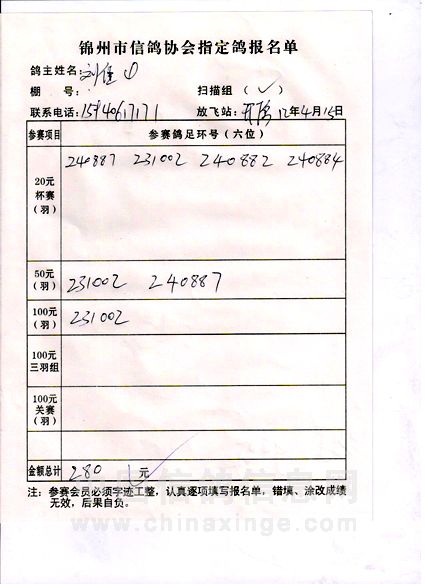 锦州市信鸽协会指定鸽报名单
鸽主姓名: 刘佳
棚 号: 扫描组 (✓)
联系电话: 15940617171 放飞站: 12年4月15日
参赛项目 参赛鸽足环号(六位)
20元 杯赛 (羽) 240887 231002 240882 240884
50元 (羽) 231002 240887
100元 (羽) 231002
100元 三羽组
100元 关赛 (羽)
金额总计 280 元
注: 参赛会员必须字迹工整, 认真逐项填写报名单, 错填、涂改成绩
无效, 后果自负。
中国信鸽信息网
www.chinaxinge.com